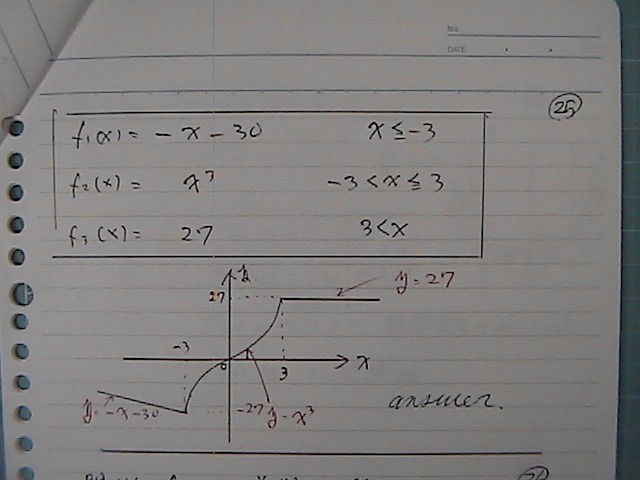 No.
DATE
25
f₁(x) = -x - 30 x ≦ -3
f₂(x) = x³ -3 < x ≦ 3
f₃(x) = 27 3 < x
y
27
y = 27
-3
0
3
x
y = -x - 30
-27
y = x³
answer.